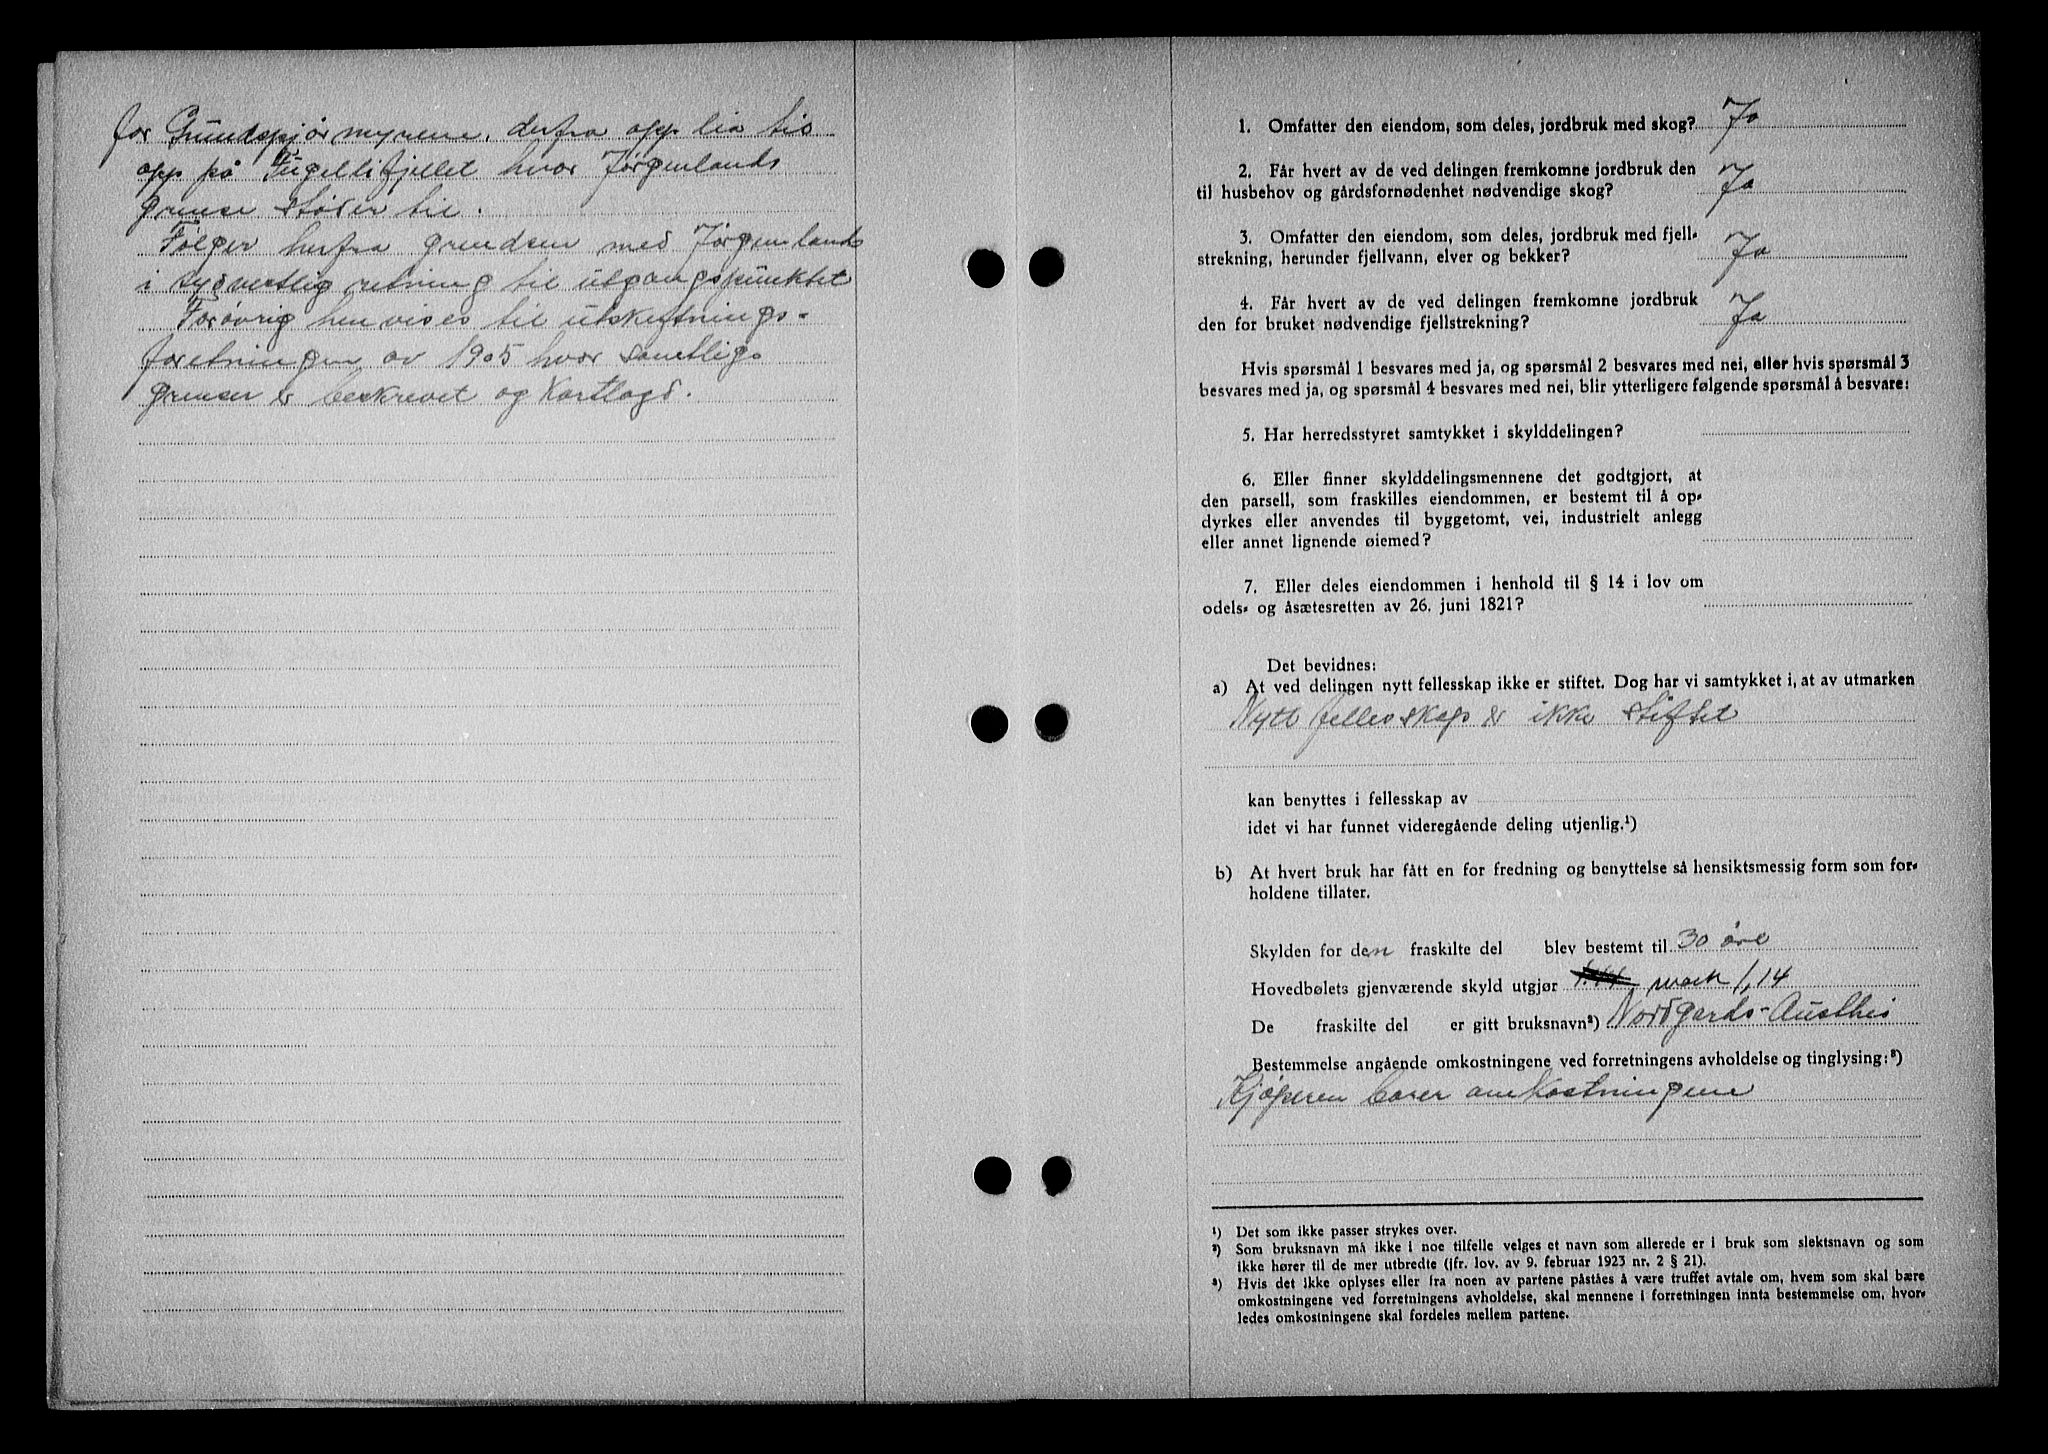 for Grundspjørmyrene. derfra opp lia til
opp på Fugellifjellet hvor Jørgenlands
grense støder til.
Følger herfra grendsen med Jørgenlands
i sydvestlig retning til utgangspunktet
Forøvrig henvises til utskiftnings-
foretningen av 1905 hvor samtlige
grenser er beskrevet og kartlagd.
1. Omfatter den eiendom, som deles, jordbruk med skog? Ja
2. Får hvert av de ved delingen fremkomne jordbruk den
til husbehov og gårdsfornødenhet nødvendige skog? Ja
3. Omfatter den eiendom, som deles, jordbruk med fjell-
strekning, herunder fjellvann, elver og bekker? Ja
4. Får hvert av de ved delingen fremkomne jordbruk
den for bruket nødvendige fjellstrekning? Ja
Hvis spørsmål 1 besvares med ja, og spørsmål 2 besvares med nei, eller hvis spørsmål 3
besvares med ja, og spørsmål 4 besvares med nei, blir ytterligere følgende spørsmål å besvare:
5. Har herredsstyret samtykket i skylddelingen?
6. Eller finner skylddelingsmennene det godtgjort, at
den parsell, som fraskilles eiendommen, er bestemt til å op-
dyrkes eller anvendes til byggetomt, vei, industrielt anlegg
eller annet lignende øiemed?
7. Eller deles eiendommen i henhold til § 14 i lov om
odels- og åsætesretten av 26. juni 1821?
Det bevidnes:
a) At ved delingen nytt fellesskap ikke er stiftet. Dog har vi samtykket i, at av utmarken
Nytt fellesskap er ikke stiftet
kan benyttes i fellesskap av
idet vi har funnet videregående deling utjenlig.¹)
b) At hvert bruk har fått en for fredning og benyttelse så hensiktsmessig form som for-
holdene tillater.
Skylden for den fraskilte del blev bestemt til 30 øre
Hovedbølets gjenværende skyld utgjør mark 1,14
De fraskilte del er gitt bruksnavn²) Nordgards-Austhei
Bestemmelse angående omkostningene ved forretningens avholdelse og tinglysing:³)
Kjøperen bærer omkostningene
¹) Det som ikke passer strykes over.
²) Som bruksnavn må ikke i noe tilfelle velges et navn som allerede er i bruk som slektsnavn og som
ikke hører til de mer utbredte (jfr. lov. av 9. februar 1923 nr. 2 § 21).
³) Hvis det ikke oplyses eller fra noen av partene påståes å være truffet avtale om, hvem som skal bære
omkostningene ved forretningens avholdelse, skal mennene i forretningen innta bestemmelse om, hvor-
ledes omkostningene skal fordeles mellem partene.